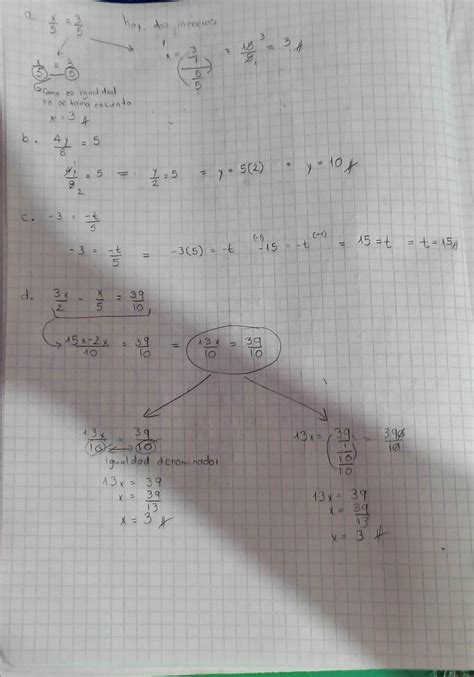 a. x/5 = 3/5 hay dos maneras
x/5 = 3/5
como es igualdad
no se toma en cuenta
x = 3
x = 3 = 3
b. 4y/8 = 5
= 5 = y/2 = 5 = y = 5(2) = y = 10
c. -3 = -t/5
-3 = -t/5 = -3(5) = -t (-1) -15 = -t (-1) = 15 = t = t = 15
d. 3x/2 - x/5 = 39/10
15x-2x/10 = 39/10 = 13x/10 = 39/10
13x/10 = 39/10
igualdad denominador
13x = 39
x = 39/13
x = 3
13x = = 390/10
13x = 39
x = 39/13
x = 3